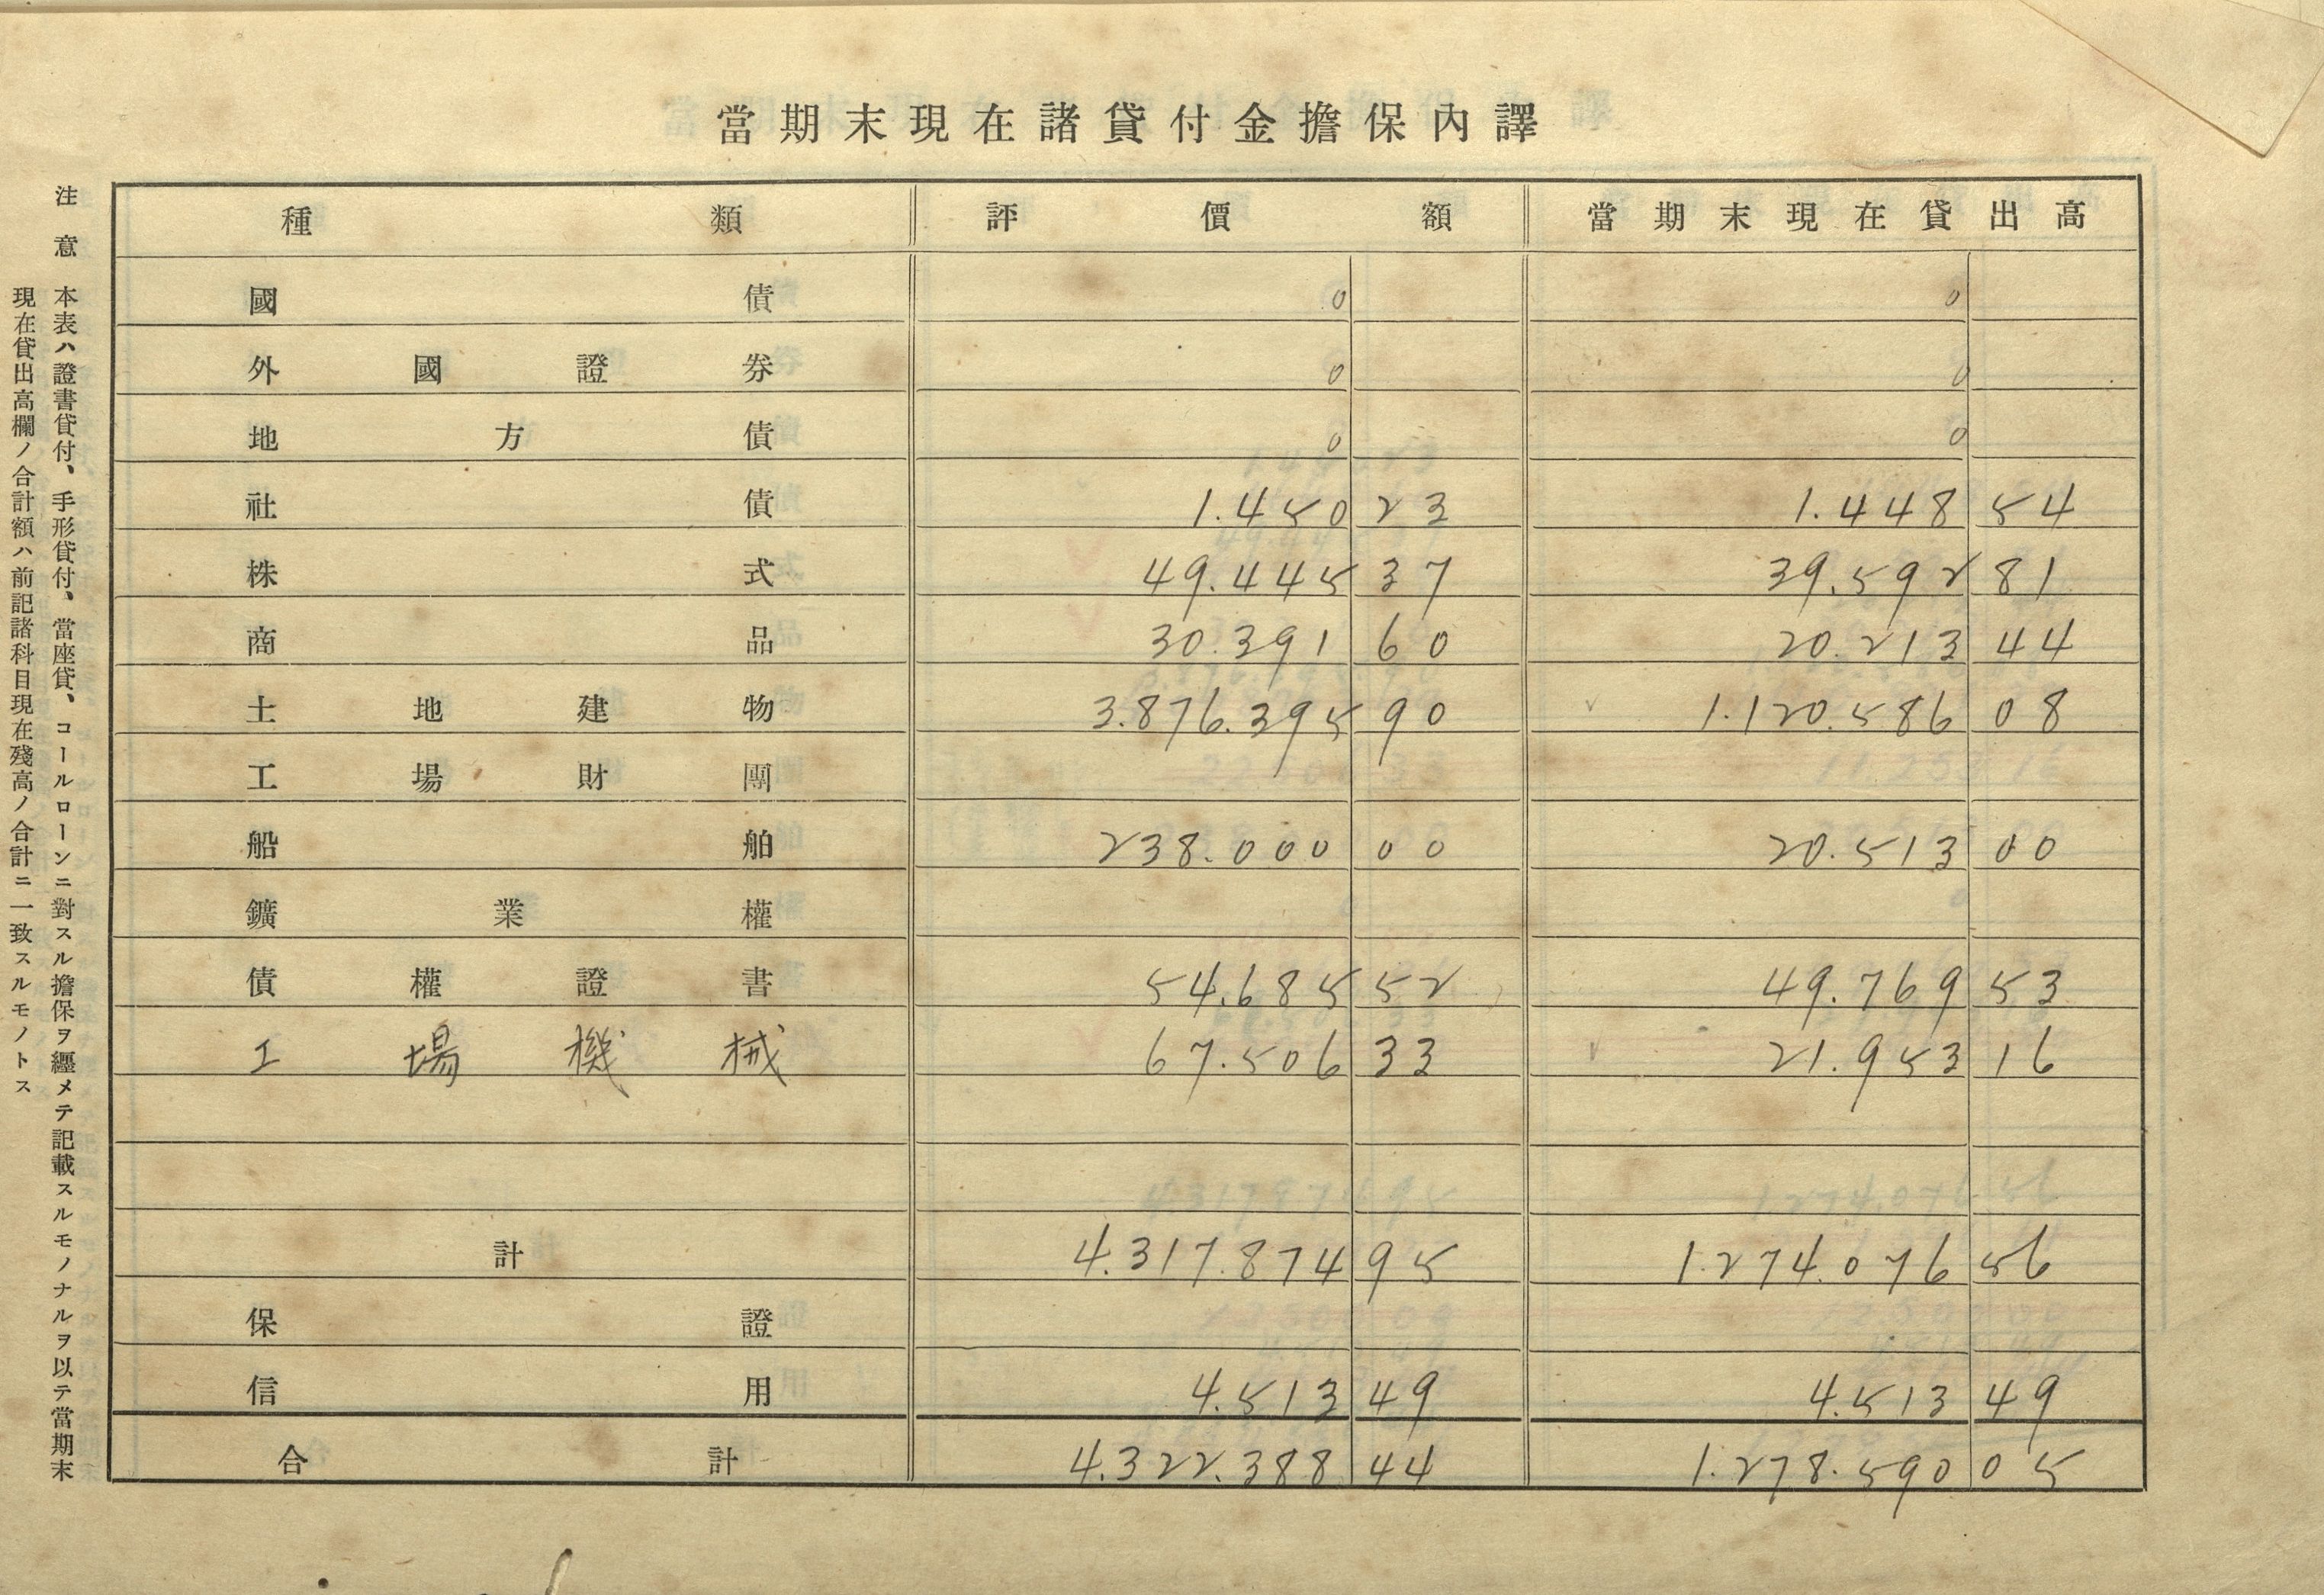 當期末現在諸貸付金擔保內譯
種類 評價額 當期末現在貸出高
國債 0 0
外國證券 0 0
地方債 0 0
社債 1.450 23 1.448 54
株式 49.445 37 39.592 81
商品 30.391 60 20.213 44
土地建物 3.876.395 90 1.120.586 08
工場財團
船舶 238.000 00 20.513 00
鑛業權
債權證書 54.685 52 49.769 53
工場機械 67.506 33 21.953 16
計 4.317.874 95 1.274.076 56
保證
信用 4.513 49 4.513 49
合計 4.322.388 44 1.278.590 05
注意 本表ハ證書貸付、手形貸付、當座貸、コールローンニ對スル擔保ヲ纒メテ記載スルモノナルヲ以テ當期末
現在貸出高欄ノ合計額ハ前記諸科目現在殘高ノ合計ニ一致スルモノトス